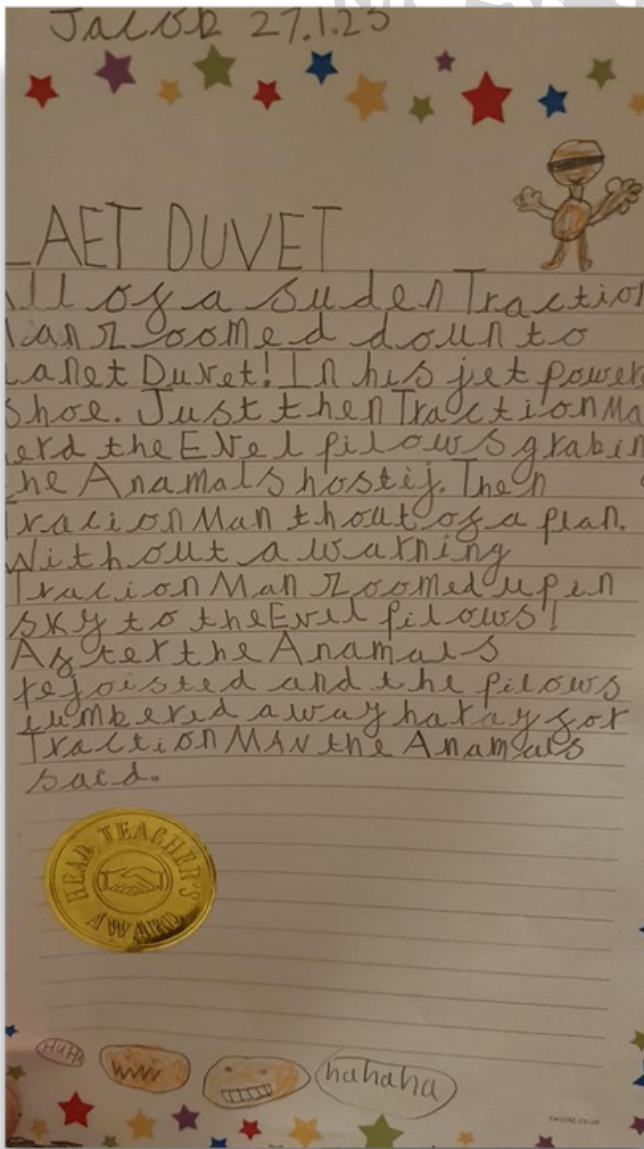 Jacob 27.1.23
LAET DUVET
All of a suden Traction
Man zoomed doun to
Lanet Duvet! In his jet power
Shoe. Just then Traction Ma
erd the Evel pilows grabin
he Anamals hostij. Then
Tracion Man thout of a plan.
Without a warning
Tracion Man zoomed up in
sky to the Evel pilows!
After the Anamals
rejoisted and the pilows
lumbered away haray for
Traction MAN the Anamals
saed.
HEAD TEACHER'S
AWARD
HaHa
hahaha
twinkl.co.uk